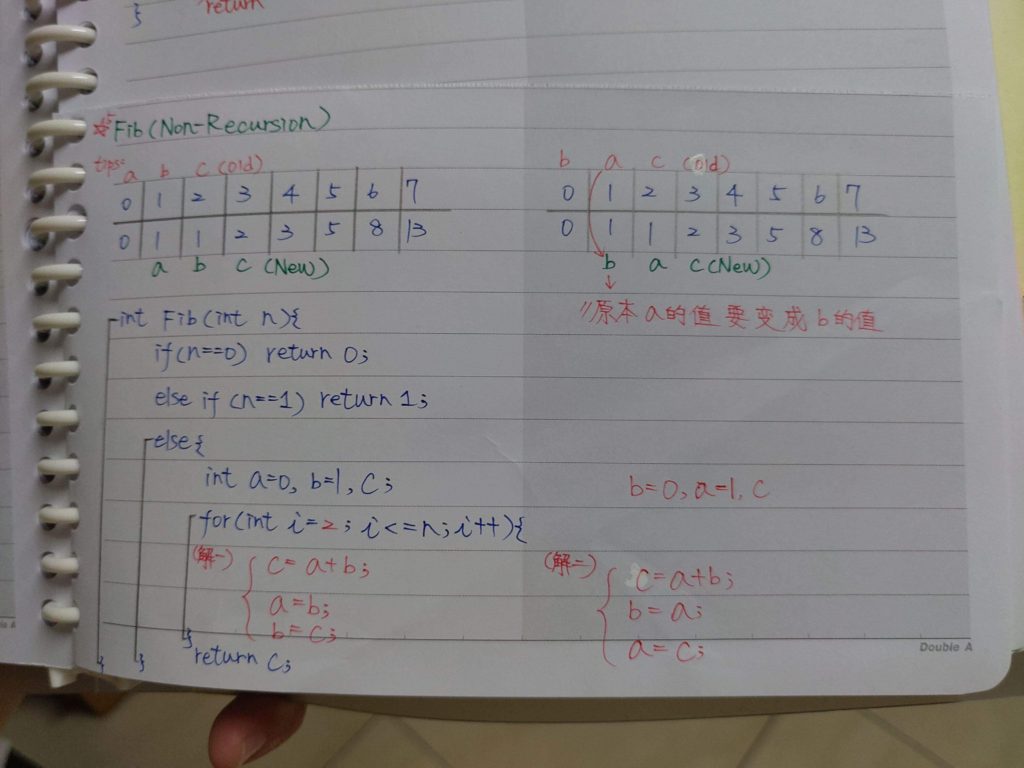 }
return
☆5 Fib (Non-Recursion)
tips:
a b c (old)
0 1 2 3 4 5 6 7
0 1 1 2 3 5 8 13
a b c (New)
b a c (old)
0 1 2 3 4 5 6 7
0 1 1 2 3 5 8 13
b a c (New)
↓
//原本a的值要變成b的值
int Fib(int n){
if(n==0) return 0;
else if (n==1) return 1;
else{
int a=0, b=1, c;
b=0, a=1, c
for(int i=2; i<=n; i++){
(解一)
{ c = a+b;
a=b;
b=c;
(解二)
{ c=a+b;
b=a;
a=c;
}
return c;
}
}
Double A